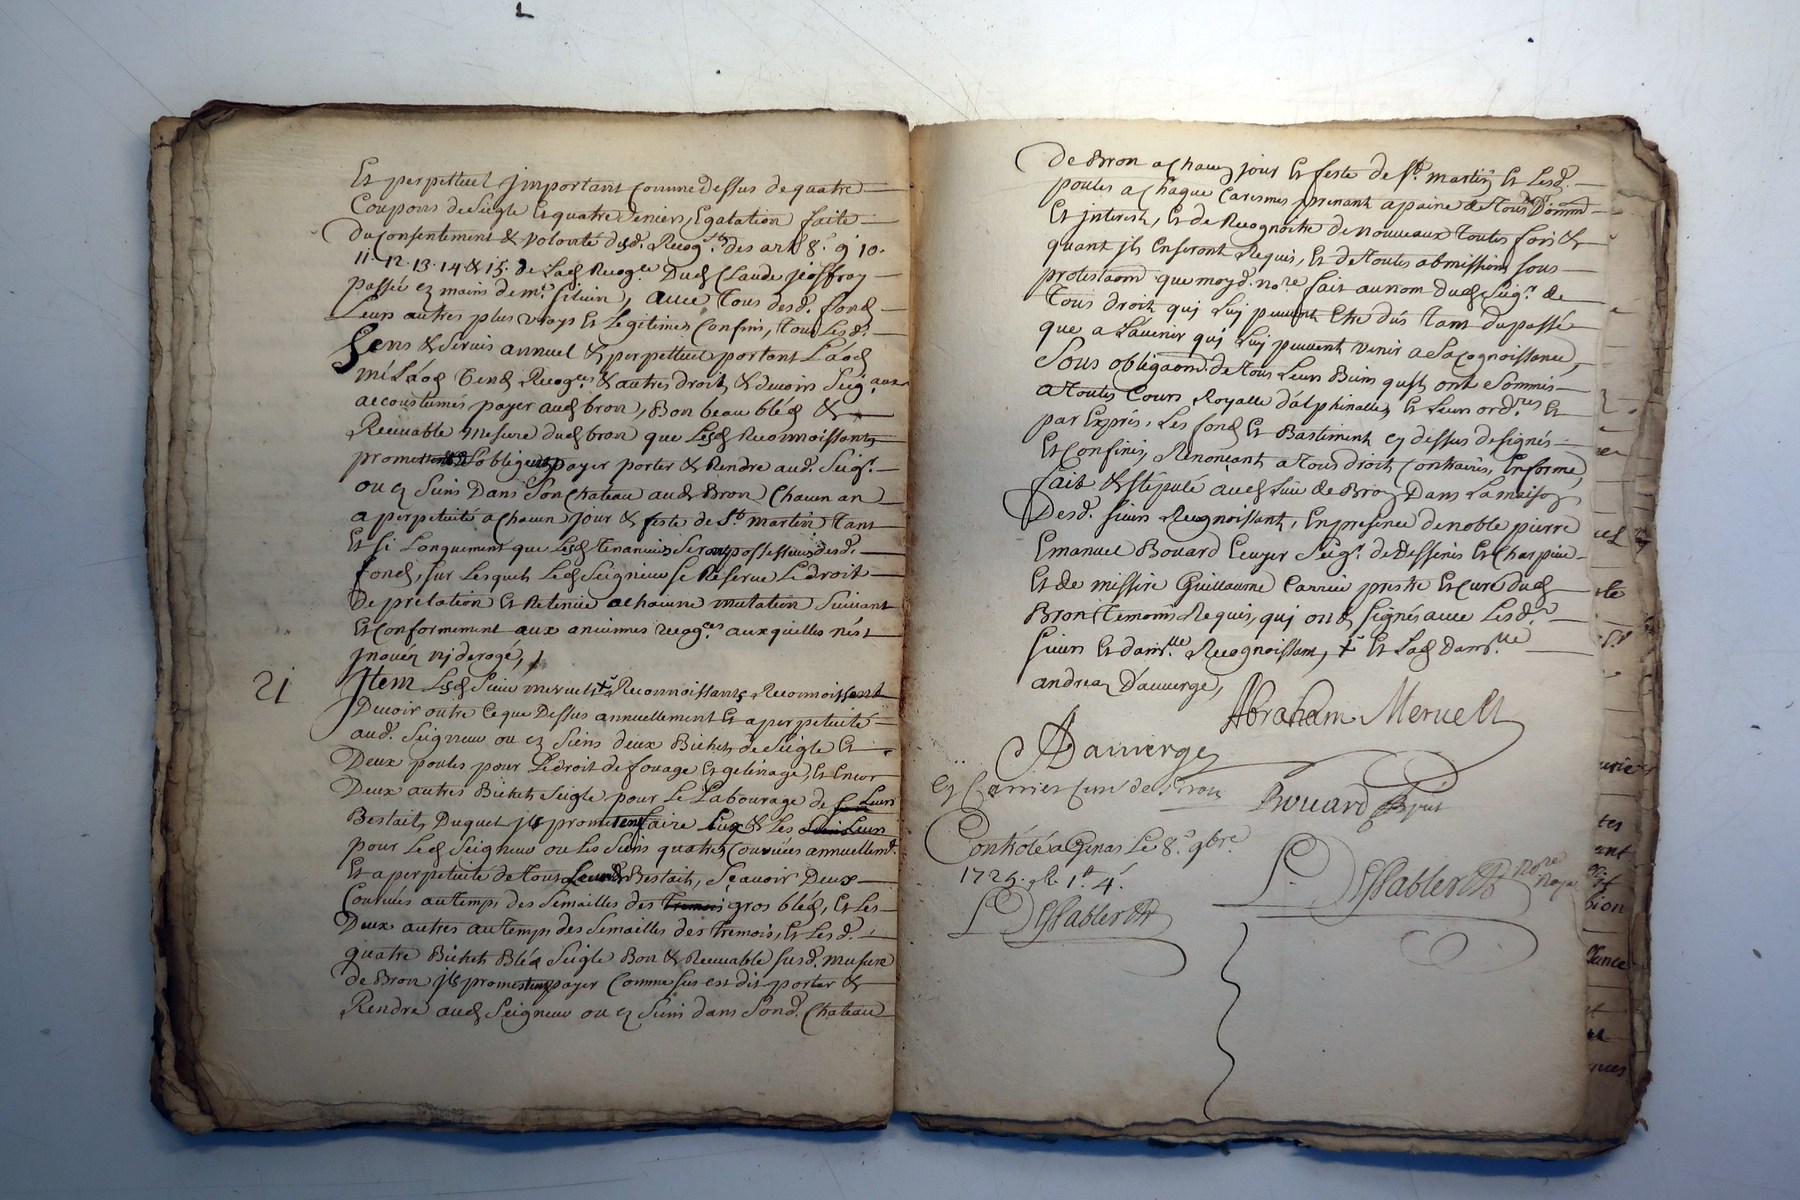 Et perpettuel jmportant comme dessus de quatre
Coupons de Seigle Et quatre deniers, Egalation faite
Du Consentement & volonté desd. Recog.ts des artt 8. 9 10.
11. 12. 13. 14 & 15. de Lad Recog.ce Dud Claude jeoffray
passée ez mains de m.e avec Tous desd. fond
Leurs autres plus vrays Et Legitimes Confins, Tous Lesd.
Sens & Servis annuel & perpettuel portant Laod
Recog.ces & autres droit, & devoirs Seig.aux
accoustumés payer aud bron, Bon beau bléd &
Recevable Mesure dud bron que Lesd Reconnoissants
payer porter & Rendre aud. Seig.r
ou ez Siens Dans Son Chateau aud Bron Chacun an
a perpetuité a Chacun jour & feste de S.t martin Tant
Et Si Longuement que Lesd Tenanciers Seront possesseurs desd.
fond, Sur Lesquels Led Seigneur Se Reserve Le droit
De prelation Et Retenüe a Chacune mutation Suivant
Et Conformement aux anciennes recog.ces auxquelles n'ést
jnové nj derogé,
21
Jtem Lesd Sieur meruelt + Reconnoissants Reconnoissent
Devoir outre Ce que Dessus annuellement Et a perpetuité
aud. Seigneur ou ez Siens deux Bichets de Seigle Et
Deux poules pour Le droit de fouage Et gelinage, Et Encor
Deux autres Bichets Seigle pour Le Labourage de Leurs
Bestails Duquel jls promettent faire
pour Led Seigneur ou les Siens quatres Corvées annuellem.t
Et a perpetuité de tous Bestails, Sçavoir Deux
Corvées au temps des Semailles des gros bleds, Et Les
Deux autres au Temps des Semailles des tremois, Et Lesd.
quatre Bichets Bléd Seigle Bon & Recevable Susd. mesure
de Bron jls promettent payer Comme Sus est dit porter &
Rendre aud Seigneur ou ez Siens dans Sond. Chateau
de Bron a Chacun jour Et feste de S.t martin Et Lesd.
poules a Chaque Caresmes prenant a paine de Tous Domm
Et jnterest, Et de Recognoitre de nouveaux Toutes fois &
quant jls En Seront Requis, Et de Toutes obmissions Sous
protestaõn que moyd. no.re fait au nom dud Seig.r de
Tous droit quj Luj peuvent Etre dûs Tant du passé
que a L'avenir quj Luj peuvent venir a Sa Cognoissance,
Sous obligaõn de Tous Leurs Biens qu'ils ont Sommis
a Toutes Cours Royalle dalphinalles Et Leurs ord.res Et
par Exprés, Les fond Et Bastiment cy dessus designés
Et Confinés, Renonçant a Tous droit Contraires, En forme,
fait & stipulé aud Lieu de Bron Dans La maison
Desd. Sieur Recognoissant, En presence de noble pierre
Emanuel Bouard Ecuyer Seig.r
Et de missire Guillaume Carrier prestre Et Curé dud
Bron Temoins Requis, quj ont Signés avec Lesd.
Sieur Et dam.lle Recognoissant, + Et Lad Dam.lle
andrea D'auverge,
Abraham Meruelt
A Dauverge
Carrier Curé de Bron
Bouard
Contrôlé a Genas Le 8.e 9bre.
1725. R. 1.tt 4.s
Dessabler
Dessablert No.re Roya